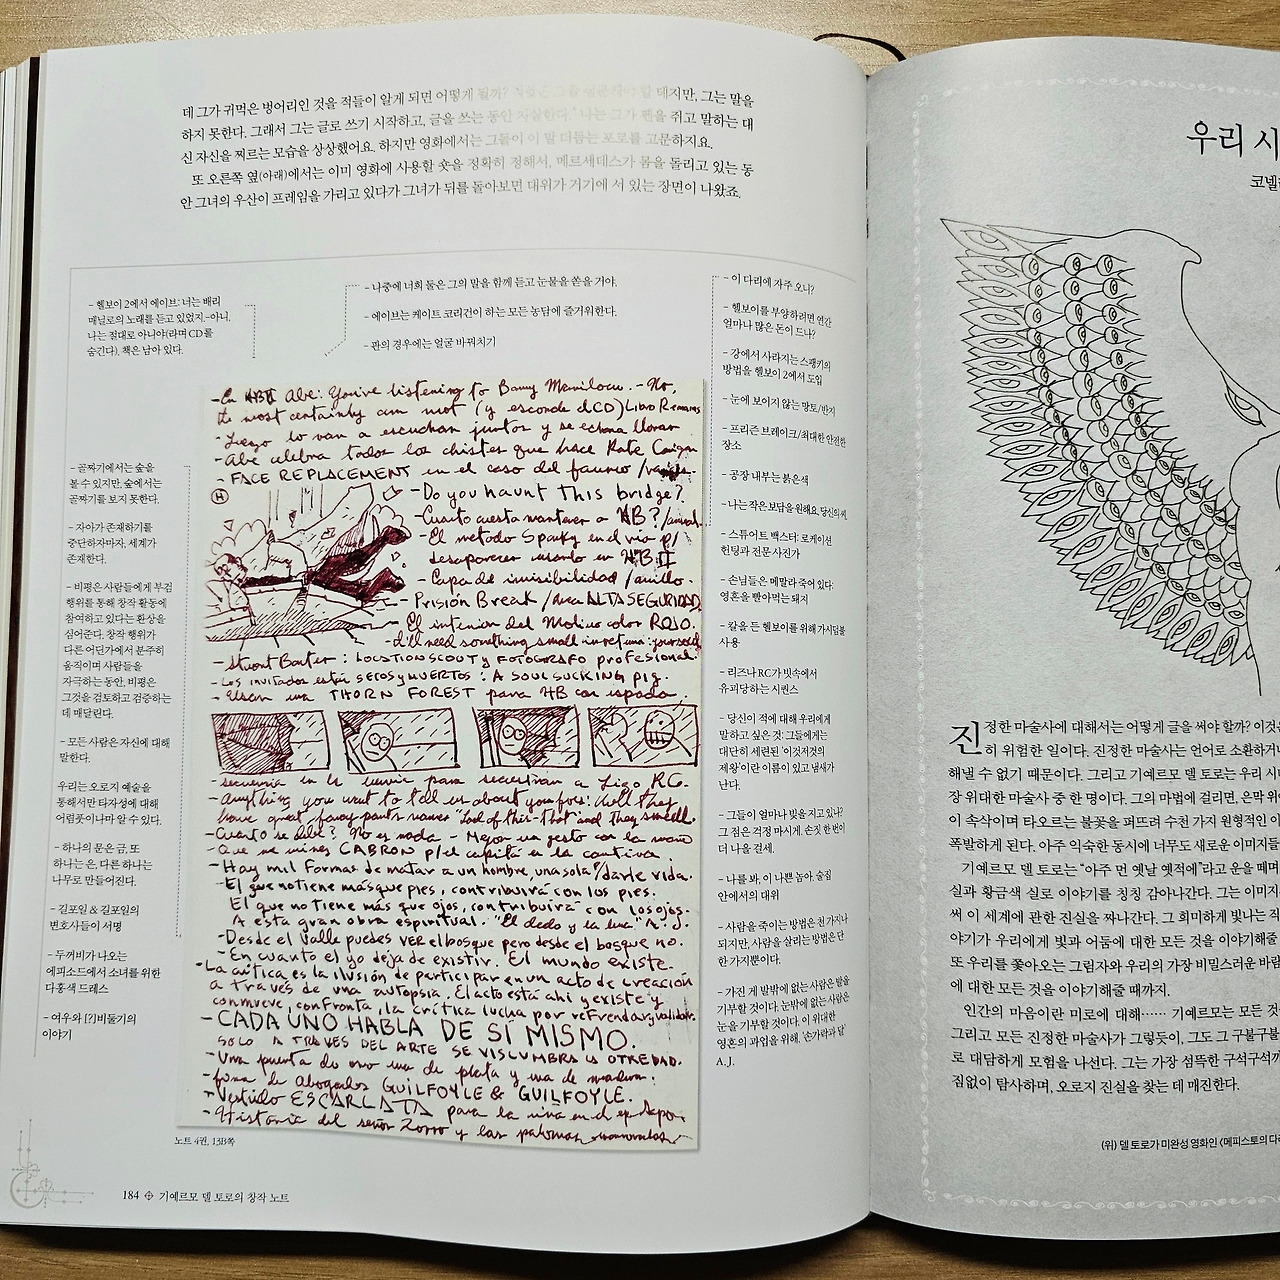 데 그가 귀먹은 벙어리인 것을 적들이 알게 되면 어떻게 될까? 테지만, 그는 말을
하지 못한다. 그래서 그는 글로 쓰기 시작하고, 글을 쓰는 동안 자살한다.' 나는 그가 펜을 쥐고 말하는 대
신 자신을 찌르는 모습을 상상했어요. 하지만 영화에서는 그들이 이 말 더듬는 포로를 고문하지요.
또 오른쪽 옆(아래)에서는 이미 영화에 사용할 숏을 정확히 정해서, 메르세데스가 몸을 돌리고 있는 동
안 그녀의 우산이 프레임을 가리고 있다가 그녀가 뒤를 돌아보면 대위가 거기에 서 있는 장면이 나왔죠.
– 헬보이 2에서 에이브: 너는 배리
매닐로의 노래를 듣고 있었지.–아니,
나는 절대로 아니야(라며 CD를
숨긴다). 책은 남아 있다.
– 나중에 너희 둘은 그의 말을 함께 듣고 눈물을 쏟을 거야.
– 에이브는 케이트 코리건이 하는 모든 농담에 즐거워한다.
– 판의 경우에는 얼굴 바꿔치기
– 골짜기에서는 숲을
볼 수 있지만, 숲에서는
골짜기를 보지 못한다.
– 자아가 존재하기를
중단하자마자, 세계가
존재한다.
– 비평은 사람들에게 부검
행위를 통해 창작 활동에
참여하고 있다는 환상을
심어준다. 창작 행위가
다른 어딘가에서 분주히
움직이며 사람들을
자극하는 동안, 비평은
그것을 검토하고 검증하는
데 매달린다.
– 모든 사람은 자신에 대해
말한다.
우리는 오로지 예술을
통해서만 타자성에 대해
어렴풋이나마 알 수 있다.
– 하나의 문은 금, 또
하나는 은, 다른 하나는
나무로 만들어진다.
– 길포일 & 길포일의
변호사들이 서명
– 두꺼비가 나오는
에피소드에서 소녀를 위한
다홍색 드레스
– 여우와 [?]비둘기의
이야기
- En HBII Abe: You've listening to Barry Manilow. - No,
I most certainly am not (y esconde el CD) Libro
- Luego lo van a escuchan juntos y se echan a llorar
- Abe celebra todos los chistes que hace Kate Corrigan
- FACE REPLACEMENT en el caso del fauno /
- Do you haunt this bridge?
- Cuanto cuesta mantener a HB? /anual.
- El metodo Spanky en el rio p/
desaparecer usando en HBII
- Capa de invisibilidad /anillo.
- Prisión Break /area ALTA SEGURIDAD.
- El interior del Molino color ROJO.
- I'll need something small in return: your soul
- Stuart Baxter: LOCATION SCOUT y FOTOGRAFO profesional.
- Los invitados están SECOS y MUERTOS: A SOUL SUCKING PIG.
- una THORN FOREST para HB con espada.
- secuencia en la lluvia para secuestran a Liz o RC.
- Anything you want to tell us about your foes: Well they
have great fancy pants names "Lord of this-That" and they smell.
- Cuanto se debe? No es nada - Mejor un gesto con la mano
- Que me mires CABRON p/el capitá en la cantina.
- Hay mil Formas de matar a un hombre, una sola p/darle vida.
- El que no tiene más que pies, contribuirá con los pies.
El que no tiene más que ojos, contribuirá con los ojos.
A esta gran obra espiritual. "El dedo y la luna" A.J.
- Desde el Valle puedes ver el bosque pero desde el bosque no.
- En cuanto el yo deja de existir. El mundo existe.
- La crítica es la ilusión de participar en un acto de creación
a través de una autopsia. El acto está ahi y existe y
conmueve, confronta, la crítica lucha por refrendar y validar.
- CADA UNO HABLA DE SÍ MISMO.
SOLO A TRAVES DEL ARTE SE VISLUMBRA LA OTREDAD.
- Una puerta de oro una de plata y una de madera.
- firma de abogados GUILFOYLE & GUILFOYLE.
- Vestido ESCARLATA para la niña en el ep
- Historia del señor Zorro y las palomas
– 이 다리에 자주 오니?
– 헬보이를 부양하려면 연간
얼마나 많은 돈이 드나?
– 강에서 사라지는 스팽키의
방법을 헬보이 2에서 도입
– 눈에 보이지 않는 망토/반지
– 프리즌 브레이크/최대한 안전한
장소
– 공장 내부는 붉은색
– 나는 작은 보답을 원해요. 당신의
– 스튜어트 백스터: 로케이션
헌팅과 전문 사진가
– 손님들은 메말라 죽어 있다:
영혼을 빨아먹는 돼지
– 칼을 든 헬보이를 위해 가시덤불
사용
– 리즈나 RC가 빗속에서
유괴당하는 시퀀스
– 당신이 적에 대해 우리에게
말하고 싶은 것: 그들에게는
대단히 세련된 '이것저것의
제왕'이란 이름이 있고 냄새가
난다.
– 그들이 얼마나 빚을 지고 있나?
그 점은 걱정 마시게. 손짓 한 번이
더 나을 걸세.
– 나를 봐, 이 나쁜 놈아. 술집
안에서의 대위
– 사람을 죽이는 방법은 천 가지나
되지만, 사람을 살리는 방법은 단
한 가지뿐이다.
– 가진 게 발밖에 없는 사람은 발을
기부할 것이다. 눈밖에 없는 사람은
눈을 기부할 것이다. 이 위대한
영혼의 과업을 위해. '손가락과 달'
A. J.
노트 4권, 13B쪽
184 기예르모 델 토로의 창작 노트
우리 시
코넬
진정한 마술사에 대해서는 어떻게 글을 써야 할까? 이것은
히 위험한 일이다. 진정한 마술사는 언어로 소환하거나
해낼 수 없기 때문이다. 그리고 기예르모 델 토로는 우리 시
장 위대한 마술사 중 한 명이다. 그의 마법에 걸리면, 은막 위
이 속삭이며 타오르는 불꽃을 퍼뜨려 수천 가지 원형적인 이
폭발하게 된다. 아주 익숙한 동시에 너무도 새로운 이미지들
기예르모 델 토로는 "아주 먼 옛날 옛적에"라고 운을 떼며
실과 황금색 실로 이야기를 칭칭 감아나간다. 그는 이미지
써 이 세계에 관한 진실을 짜나간다. 그 희미하게 빛나는 작
야기가 우리에게 빛과 어둠에 대한 모든 것을 이야기해줄
또 우리를 쫓아오는 그림자와 우리의 가장 비밀스러운 바람
에 대한 모든 것을 이야기해줄 때까지.
인간의 마음이란 미로에 대해…… 기예르모는 모든 것
그리고 모든 진정한 마술사가 그렇듯이, 그도 그 구불구불
로 대담하게 모험을 나선다. 그는 가장 섬뜩한 구석구석
짐없이 탐사하며, 오로지 진실을 찾는 데 매진한다.
(위) 델 토로가 미완성 영화인 〈메피스토의 다리